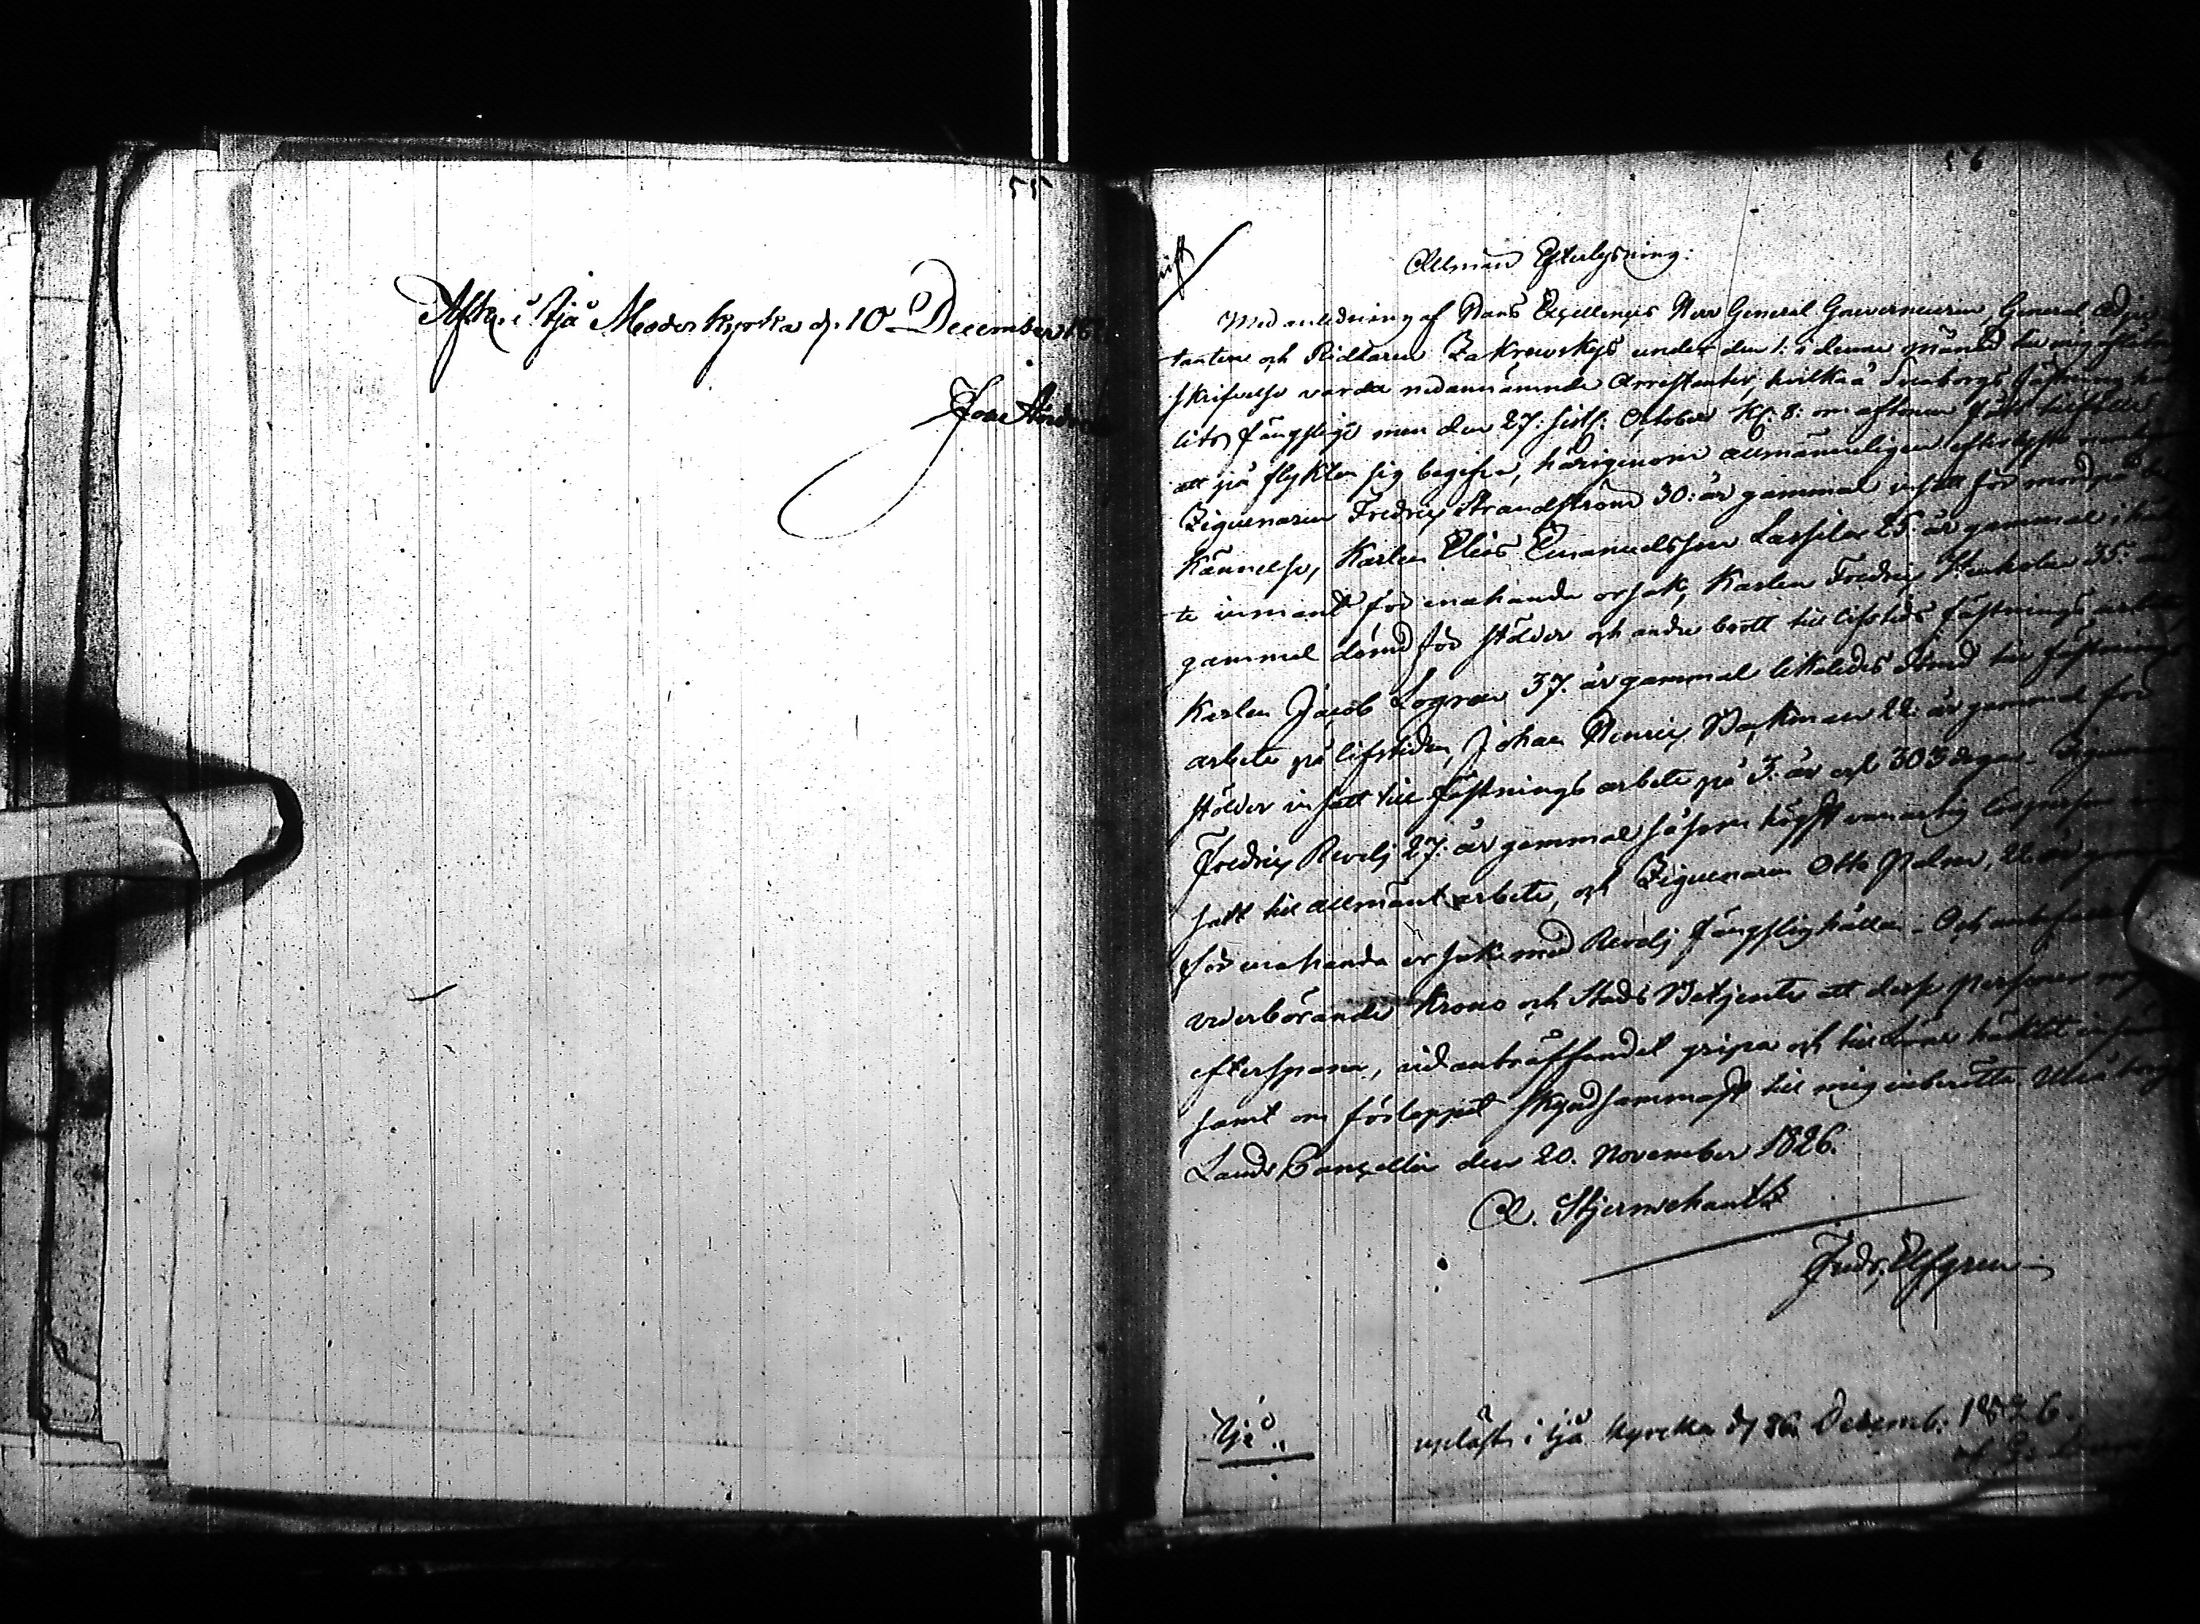 55
i Ijå Moderkyrka d. 10 December
56
Allmän Efterlysning:
Med anledning af Hans Excellences Herr General Gouverneuren, General
tanten och Riddaren Zakrewskys under den 1: i denne månad till mig
skrifvelse varda nedannämnde Arrestanter, hvilka å Sveaborgs fästning
fängslige men den 27: sistl: October Kl: 8: om aftonen fått tillfälle
att på flykten sig begifva, härigenom allmänneligen efterlyste
Ziguenaren Fredric Strandström 30: år gammal insatt för mord på
kännelse, Karlen Elias Emanuelsson Lassila 25 år gammal
te inmand för enahanda orsak, Karlen Fredric Stenholm 35:
gammal dömd för stölder och andre brott till lifstids fästnings
Karlen Jacob Logren 37. år gammal likaledes dömd till fästnings
arbete på lifstiden, Johan Henric Backman 22: år gammal för
stölder insatt till fästnings arbete på 3. år och 303 dagar
Fredric Revelj 27: år gammal såsom högst vanartig
satt till allmänt arbete, och Ziguenaren Otto Palm, 22 år
för enahanda orsak med Revelj fängslig hållen. Och
vederbörande Krono och Stads Betjente att desse personer
efterspana, vid anträffandet gripa och till Läne häktet
samt om förloppet skyndsammast till mig inberätta. Uleåborgs
Lands Cancellie den 20. November 1826.
Stjernschantz
Fredr. Elfgren
Ijå
upläst i Ijå kyrcka d. Decemb: 1826.